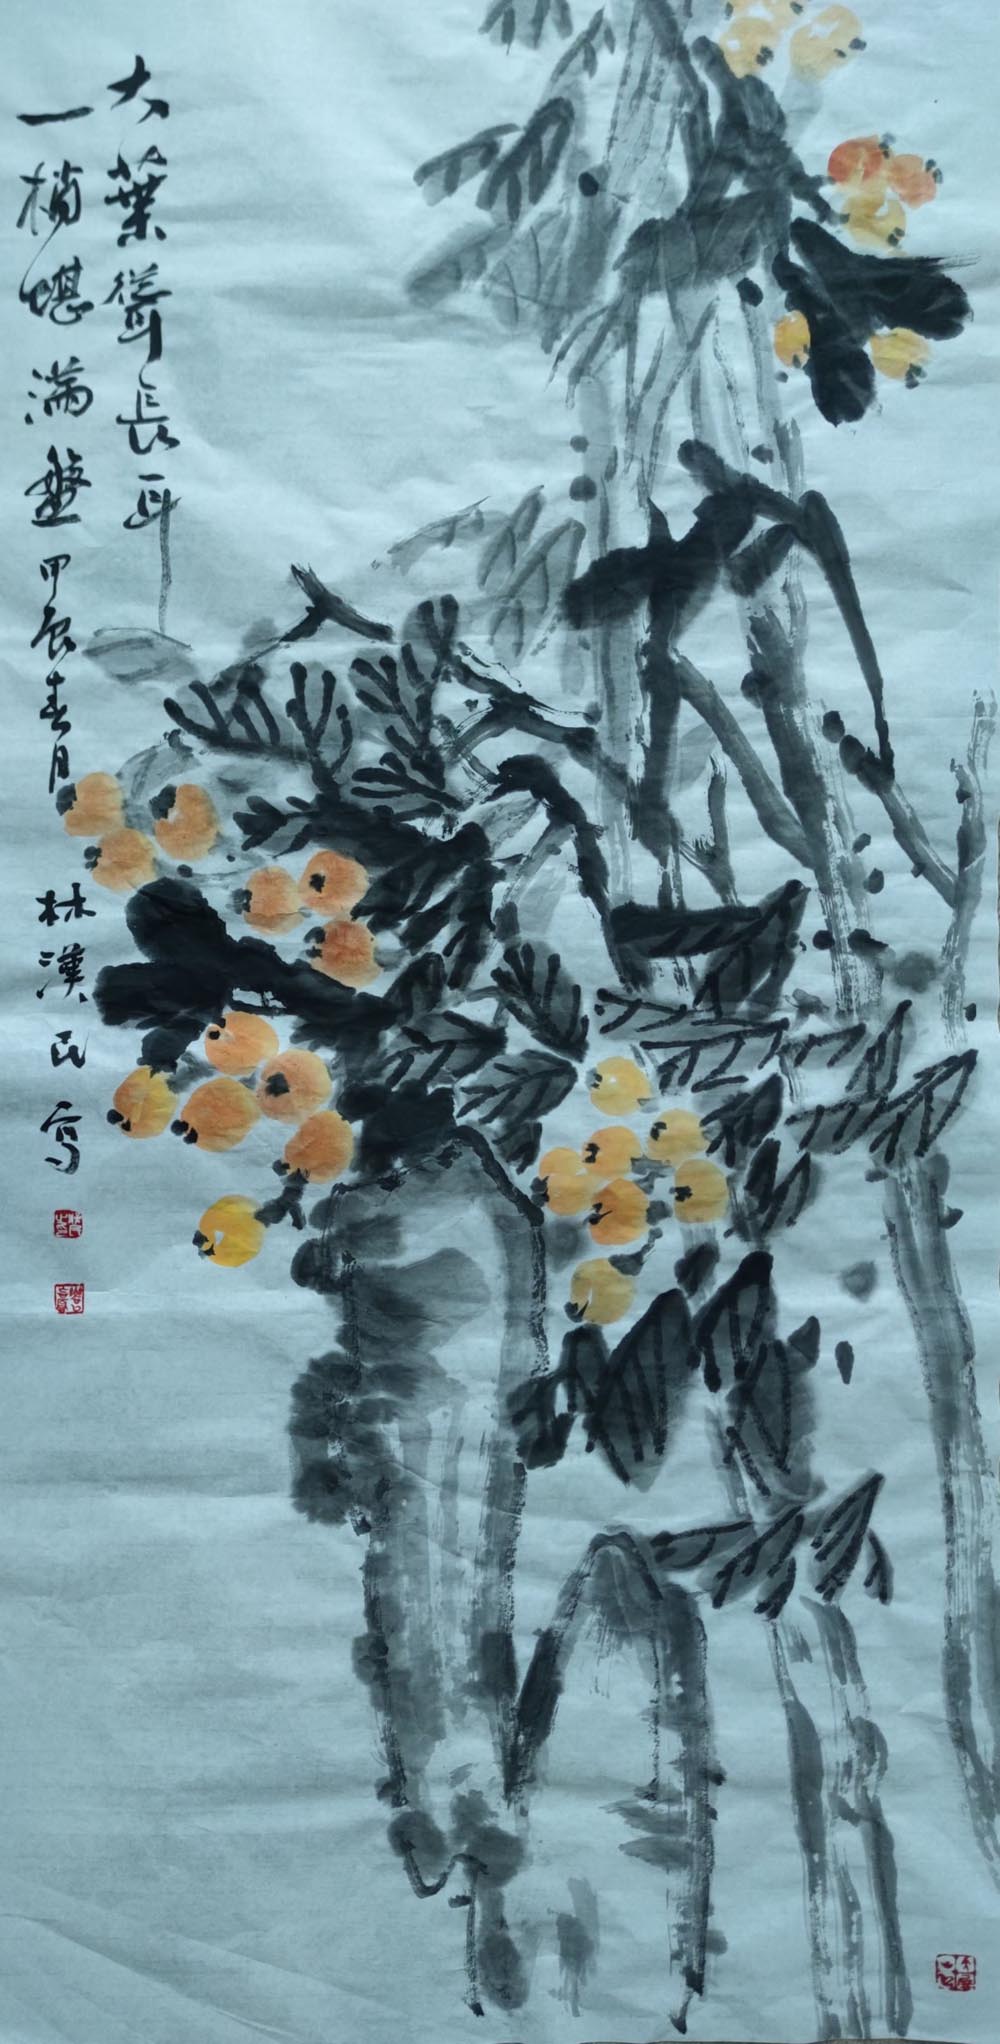 大葉聳長耳
一梢堪滿盤
甲辰春月
林漢民寫